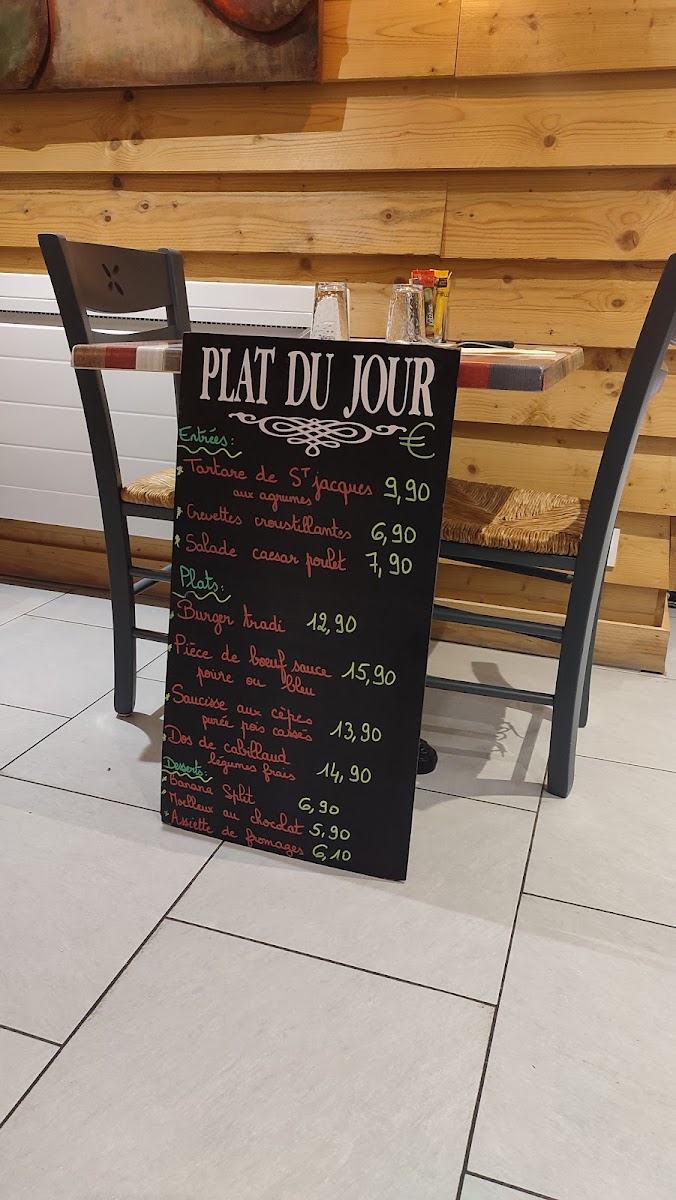 PLAT DU JOUR
€
Entrées:
Tartare de St jacques 9,90
aux agrumes
Crevettes croustillantes 6,90
Salade caesar poulet 7,90
Plats:
Burger tradi 12,90
Pièce de bœuf sauce 15,90
poivre ou bleu
Saucisse aux cèpes
purée pois cassés 13,90
Dos de cabillaud
légumes frais 14,90
Desserts:
Banana Split 6,90
Moelleux au chocolat 5,90
Assiette de fromages 6,10